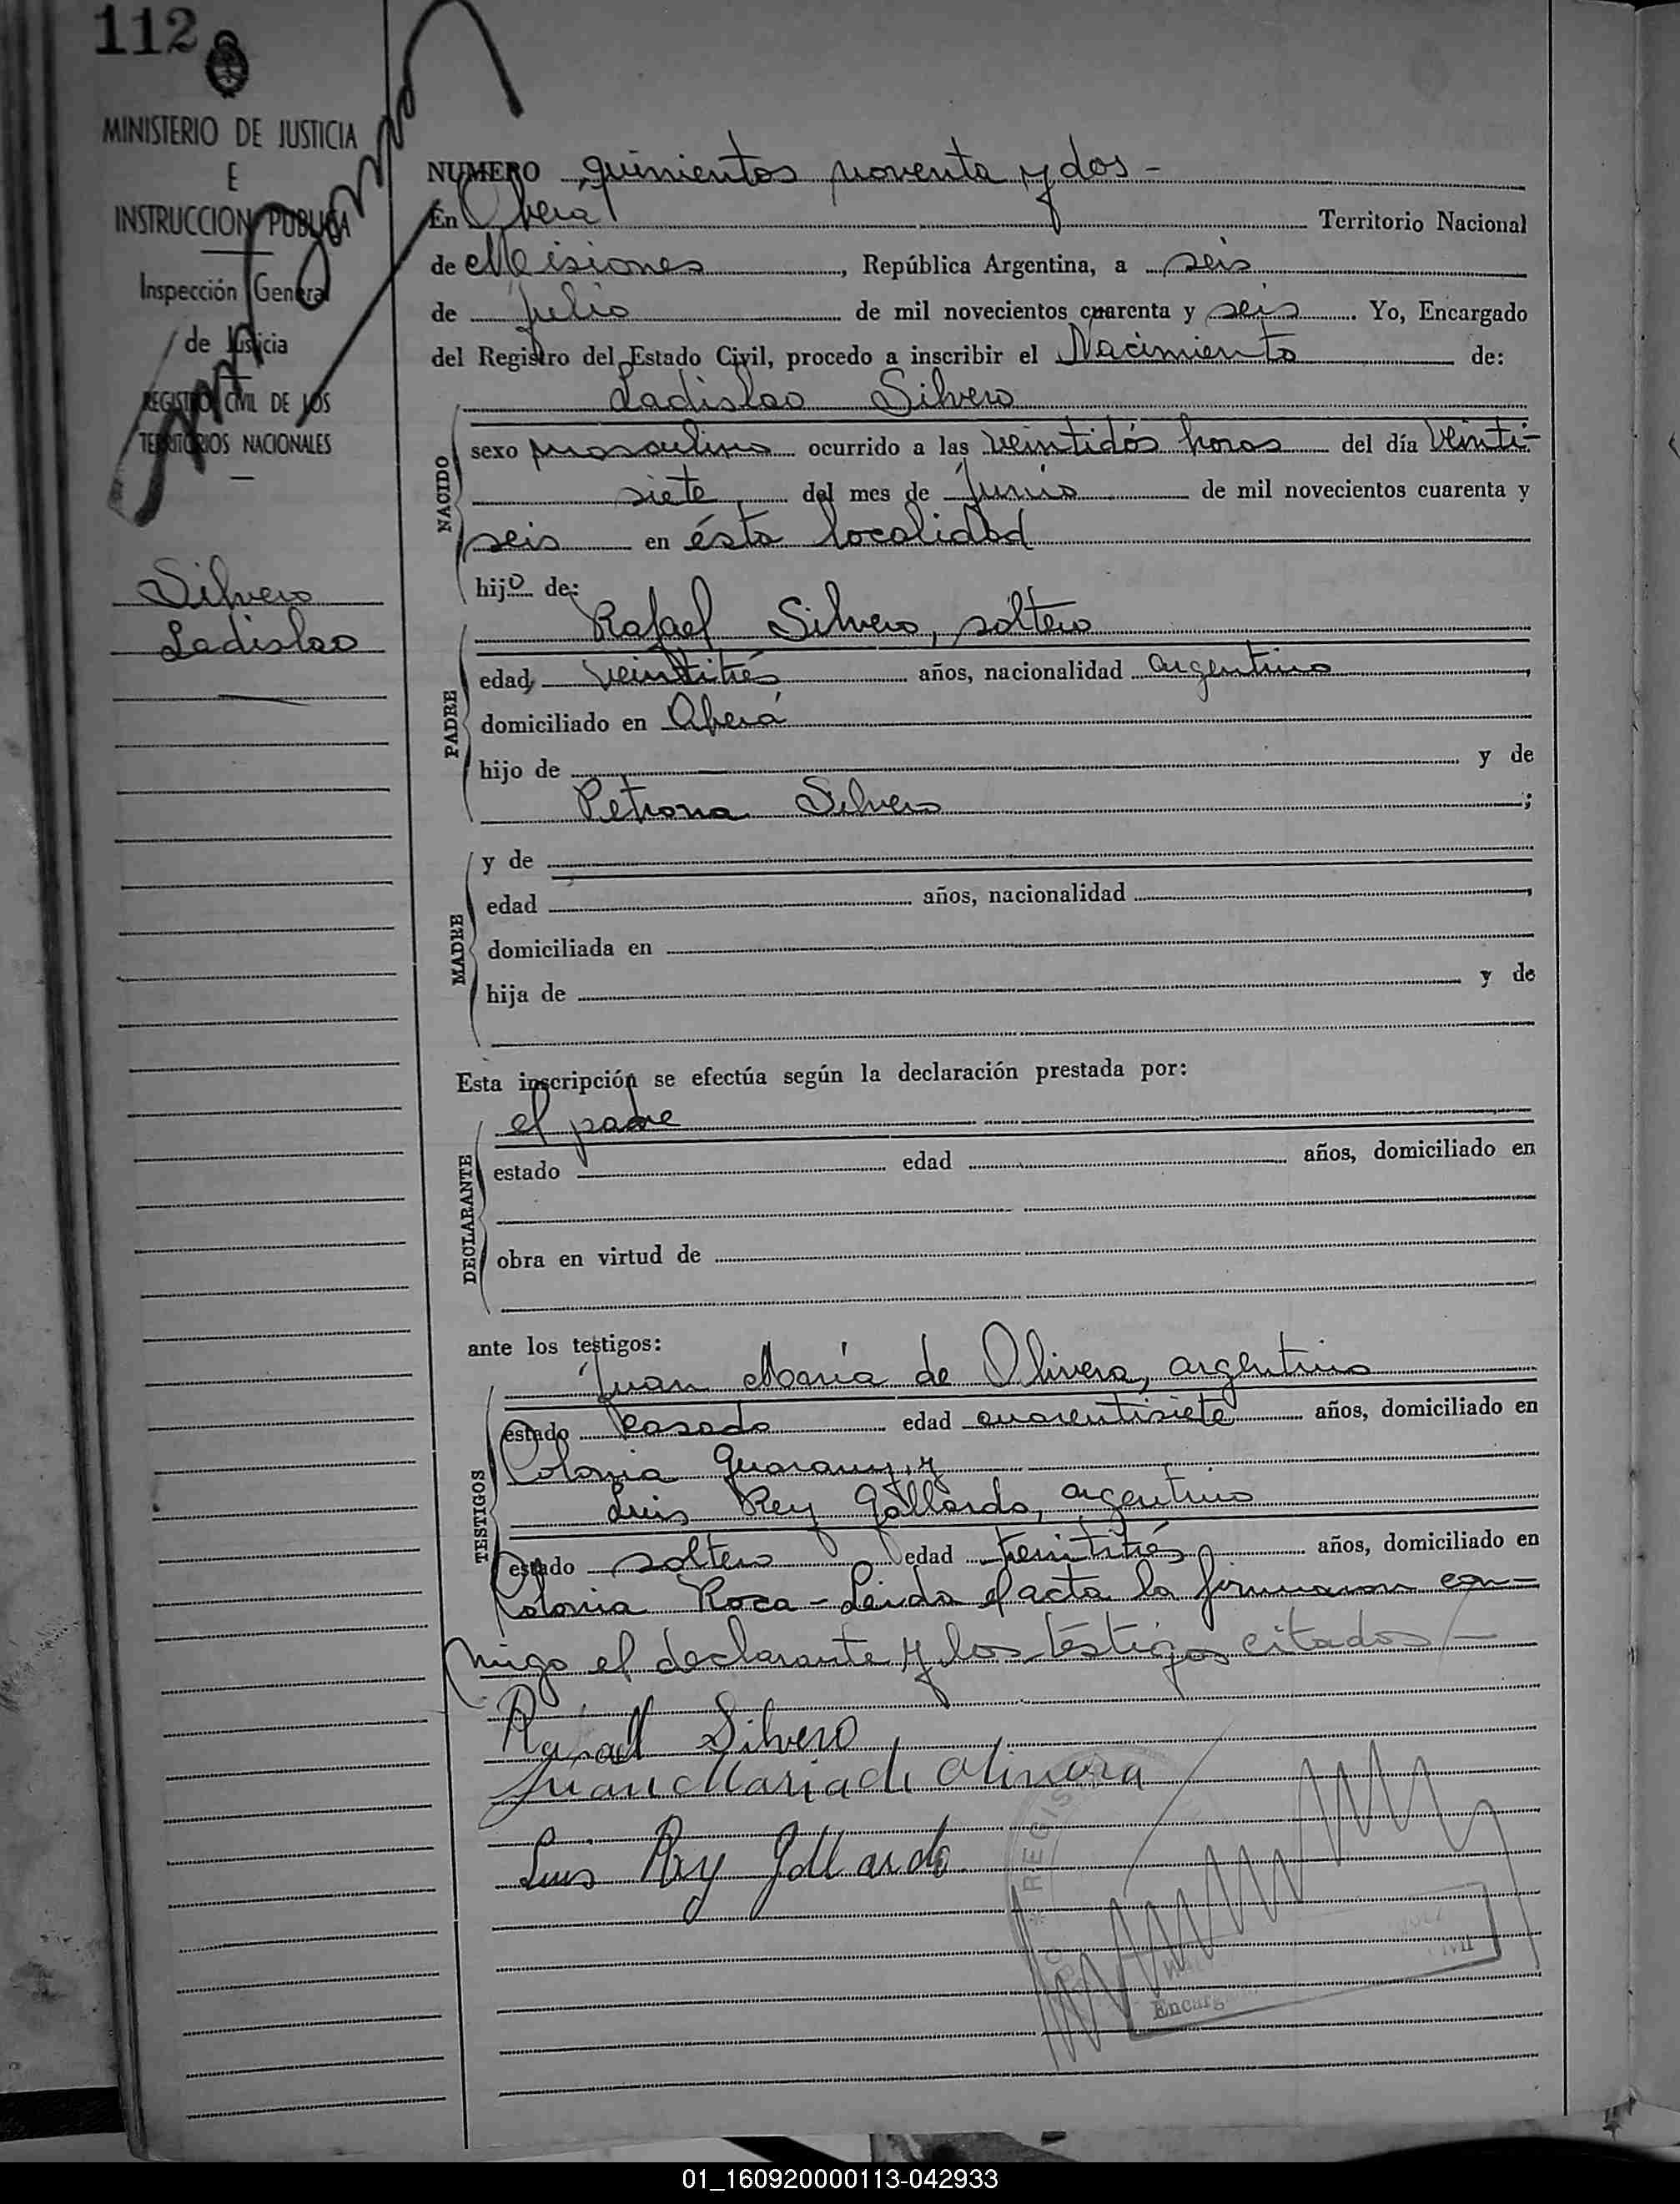 112
MINISTERIO DE JUSTICIA
E
INSTRUCCION PUBLICA
Inspección General
de Justicia
REGISTRO CIVIL DE LOS
TERRITORIOS NACIONALES
Silvero
Ladislao
NUMERO quinientos noventa y dos -
En Oberá Territorio Nacional
de Misiones, República Argentina, a seis
de julio de mil novecientos cuarenta y seis. Yo, Encargado
del Registro del Estado Civil, procedo a inscribir el Nacimiento de:
Ladislao Silvero
NACIDO
sexo masculino ocurrido a las veintidós horas del día veinti-
siete del mes de junio de mil novecientos cuarenta y
seis en ésta localidad
hijo de:
Rafael Silvero, soltero
PADRE
edad, veintitrés años, nacionalidad argentino
domiciliado en Oberá
hijo de y de
Petrona Silvero ;
MADRE
y de
edad años, nacionalidad
domiciliada en
hija de y de
Esta inscripción se efectúa según la declaración prestada por:
el padre
DECLARANTE
estado edad años, domiciliado en
obra en virtud de
ante los testigos:
Juan María de Olivera, argentino
TESTIGOS
estado casado edad cuarentisiete años, domiciliado en
Colonia Guarany, y
Luis Rey Gallardo, argentino
estado soltero edad treintitrés años, domiciliado en
Colonia Roca - Leida el acta la firmaron con-
migo el declarante y los téstigos citados -
Rafaell Silvero
Juan Maria de Olivera
Luis Rey Gallardo
REGIS
Encarg
Civil
01_160920000113-042933